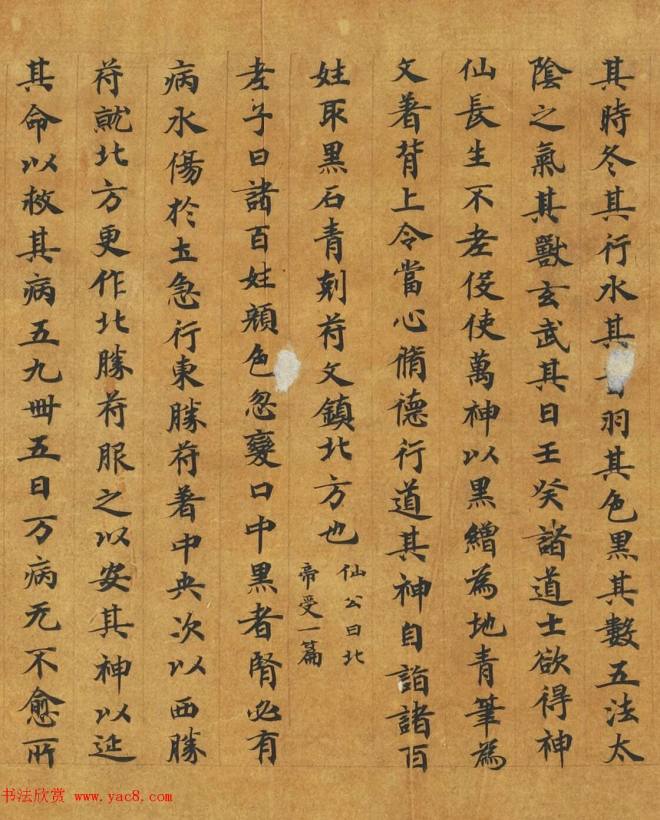 其時冬其行水其音羽其色黑其數五法太
陰之氣其獸玄武其日壬癸諸道士欲得神
仙長生不老伇使萬神以黑繒為地青筆為
文著背上令當心脩德行道其神自詣諸百
姓取黑石青刻符文鎮北方也
仙公曰北
帝受一篇
老子曰諸百姓顏色忽變口中黑者腎必有
病水傷於土急行東勝符著中央次以西勝
符就北方更作北勝符服之以安其神以延
其命以救其病五九卌五日万病无不愈所
书法欣赏 www.yac8.com